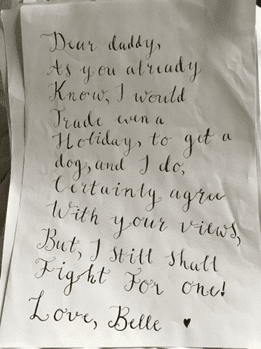 Dear daddy,
As you already
Know, I would
Trade even a
Holiday, to get a
dog, and I do,
Certainly agree
With your views,
But, I Still Shall
Fight For one!
Love, Belle ♥